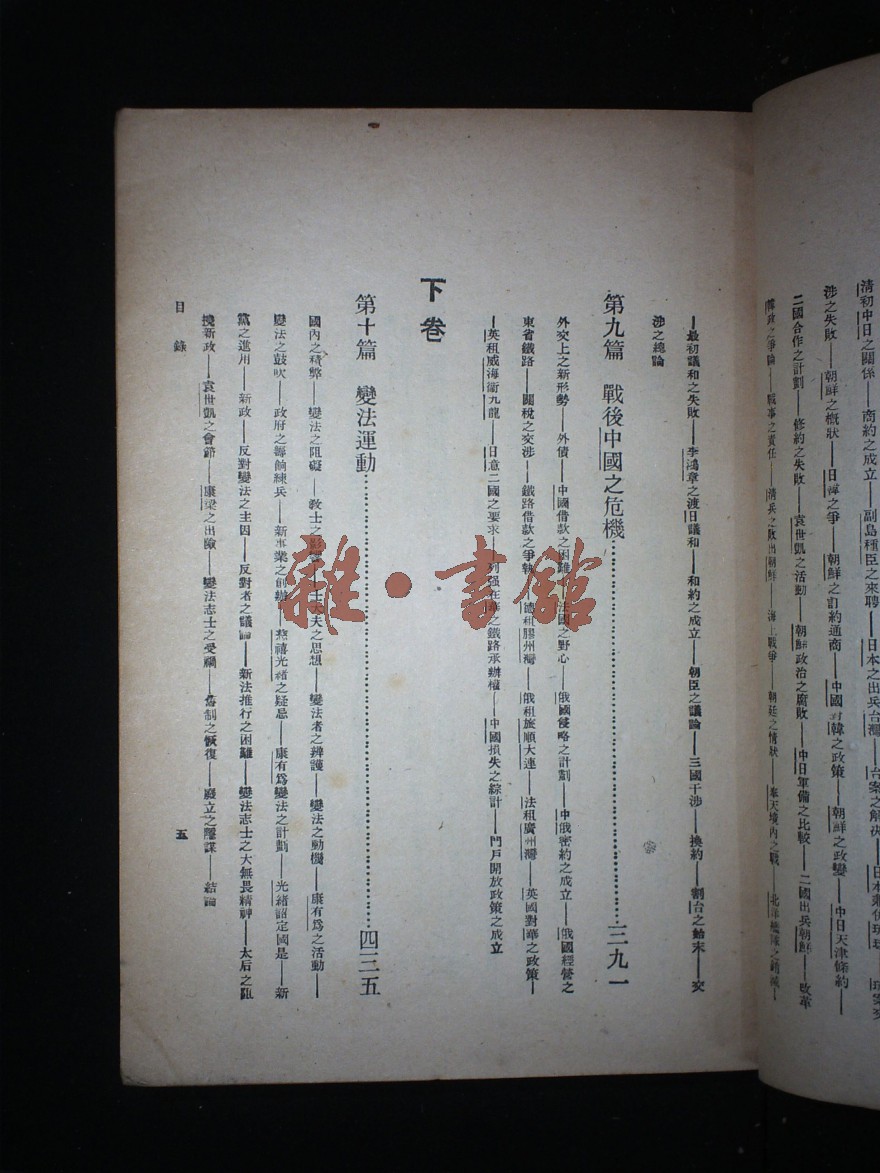 清初中日之關係——商約之成立——副島種臣之來聘——日本之出兵台灣——台案之解決——
涉之失敗——朝鮮之概狀——日韓之爭——朝鮮之訂約通商——中國對韓之政策——朝鮮之政變——中日天津條約——
二國合作之計劃——修約之失敗——袁世凱之活動——朝鮮政治之腐敗——中日軍備之比較——二國出兵朝鮮——改革
韓政之爭論——戰事之責任——清兵之敗出朝鮮——海上戰爭——朝廷之情狀——奉天境內之戰——北洋艦隊之
——最初議和之失敗——李鴻章之渡日議和——和約之成立——朝臣之議論——三國干涉——換約——割台之始末——交
涉之總論
第九篇 戰後中國之危機……三九一
外交上之新形勢——外債——中國借款之困難——法國之野心——俄國侵略之計劃——中俄密約之成立——俄國經營之
東省鐵路——關稅之交涉——鐵路借款之爭執——德租膠州灣——俄租旅順大連——法租廣州灣——英國對華之政策——
——英租威海衛九龍——日意二國之要求——列强在華之鐵路承辦權——中國損失之綜計——門戶開放政策之成立
下卷
第十篇 變法運動……四三五
國內之積弊——變法之阻礙——敎士之影響——士大夫之思想——變法者之辨護——變法之動機——康有爲之活動——
變法之鼓吹——政府之籌餉練兵——新事業之創辦——慈禧光緒之疑忌——康有爲變法之計劃——光緒詔定國是——新
黨之進用——新政——反對變法之主因——反對者之議論——新法推行之困難——變法志士之大無畏精神——太后之阻
撓新政——袁世凱之會節——康梁之出險——變法志士之受禍——舊制之恢復——廢立之隱謀——結論
目錄
五
雜·書館